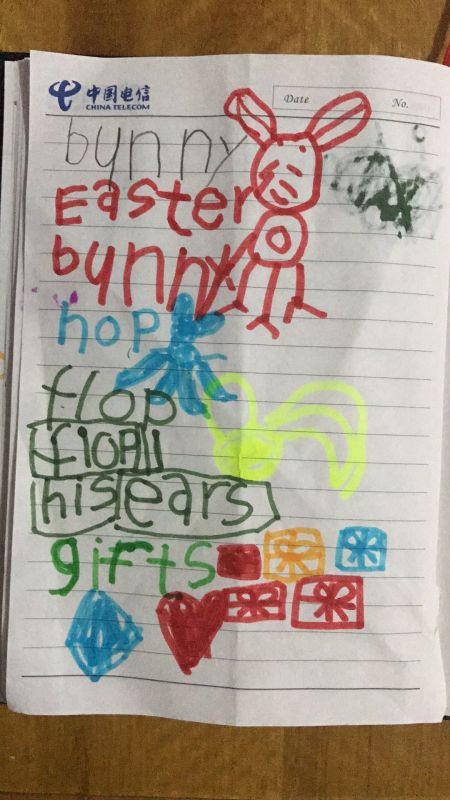 中国电信
CHINA TELECOM
Date No.
bynny
Easter
bynny
hop
flop
flop
his ears
gifts